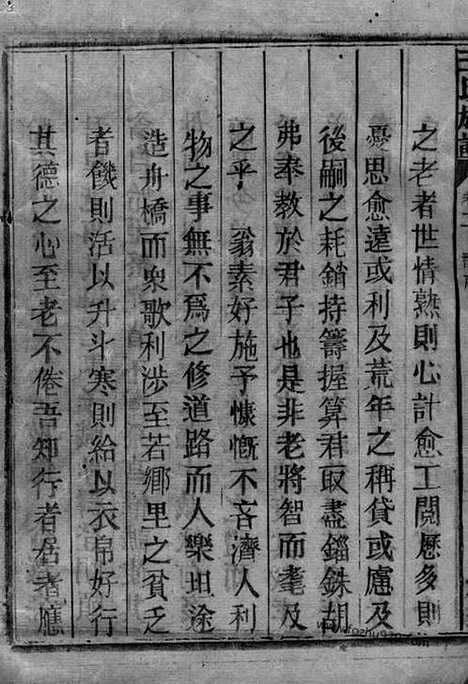 之老者世情熟則心計愈工閱歷多則
憂思愈遠或利及荒年之稱貸或慮及
後嗣之耗錯持籌握算君取盡錙銖胡
弗奉教於君子也是非老將智而耄及
之乎 翁素好施予慷慨不吝濟人利
物之事無不為之修道路而人樂坦途
造舟橋而衆歌利涉至若鄉里之貧乏
者饑則活以升斗寒則給以衣帛好行
其德之心至老不倦吾知行者居者應